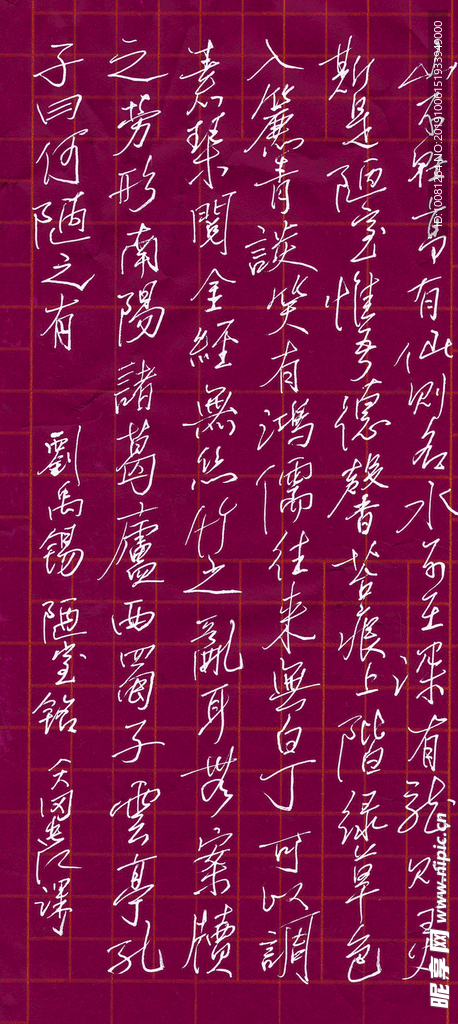 山不在高有仙则名水不在深有龙则灵
斯是陋室惟吾德馨苔痕上階绿草色
入簾青談笑有鴻儒往来無白丁可以調
素琴閲金經無丝竹之亂耳無案牘
之劳形南陽諸葛廬西蜀子雲亭孔
子曰何陋之有 劉禹錫 陋室銘
昵享网 www.nipic.cn